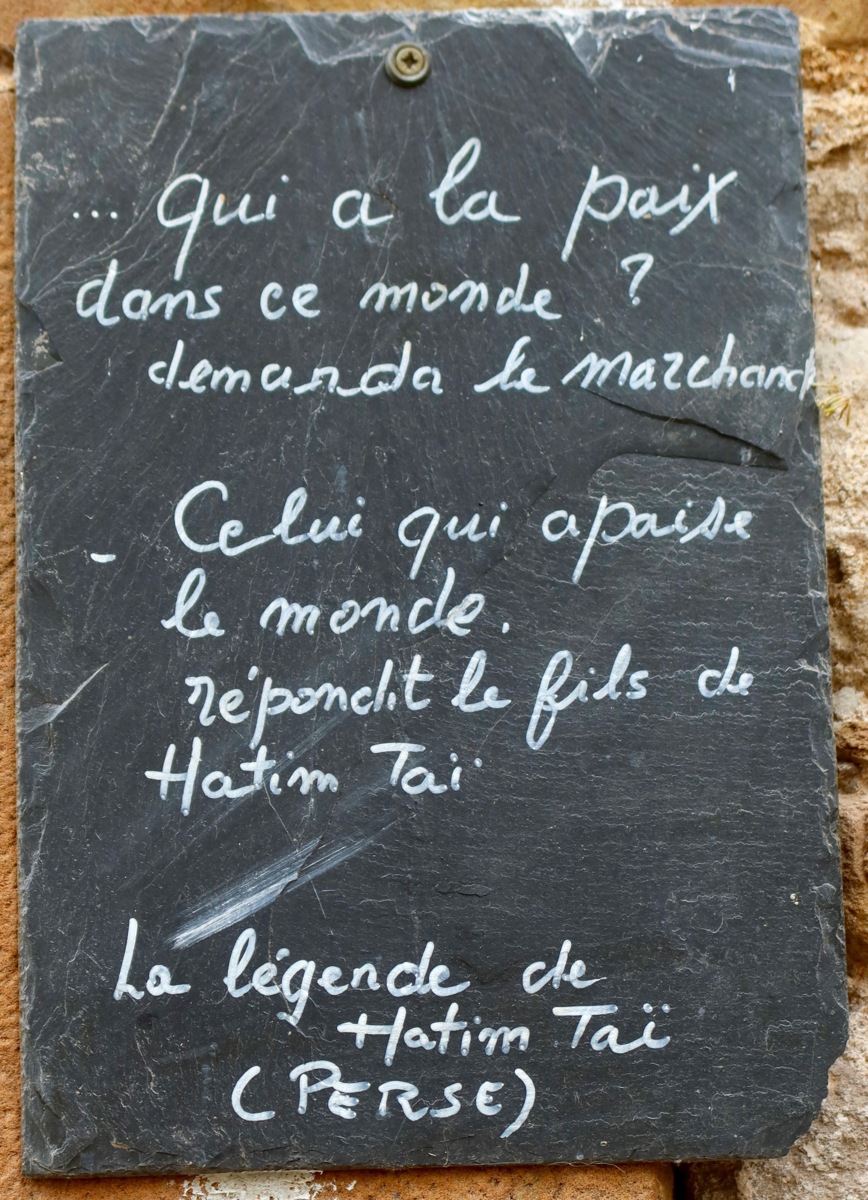 ... qui a la paix
dans ce monde ?
demanda le marchand
- Celui qui apaise
le monde.
répondit le fils de
Hatim Taï
La légende de
Hatim Taï
(PERSE)